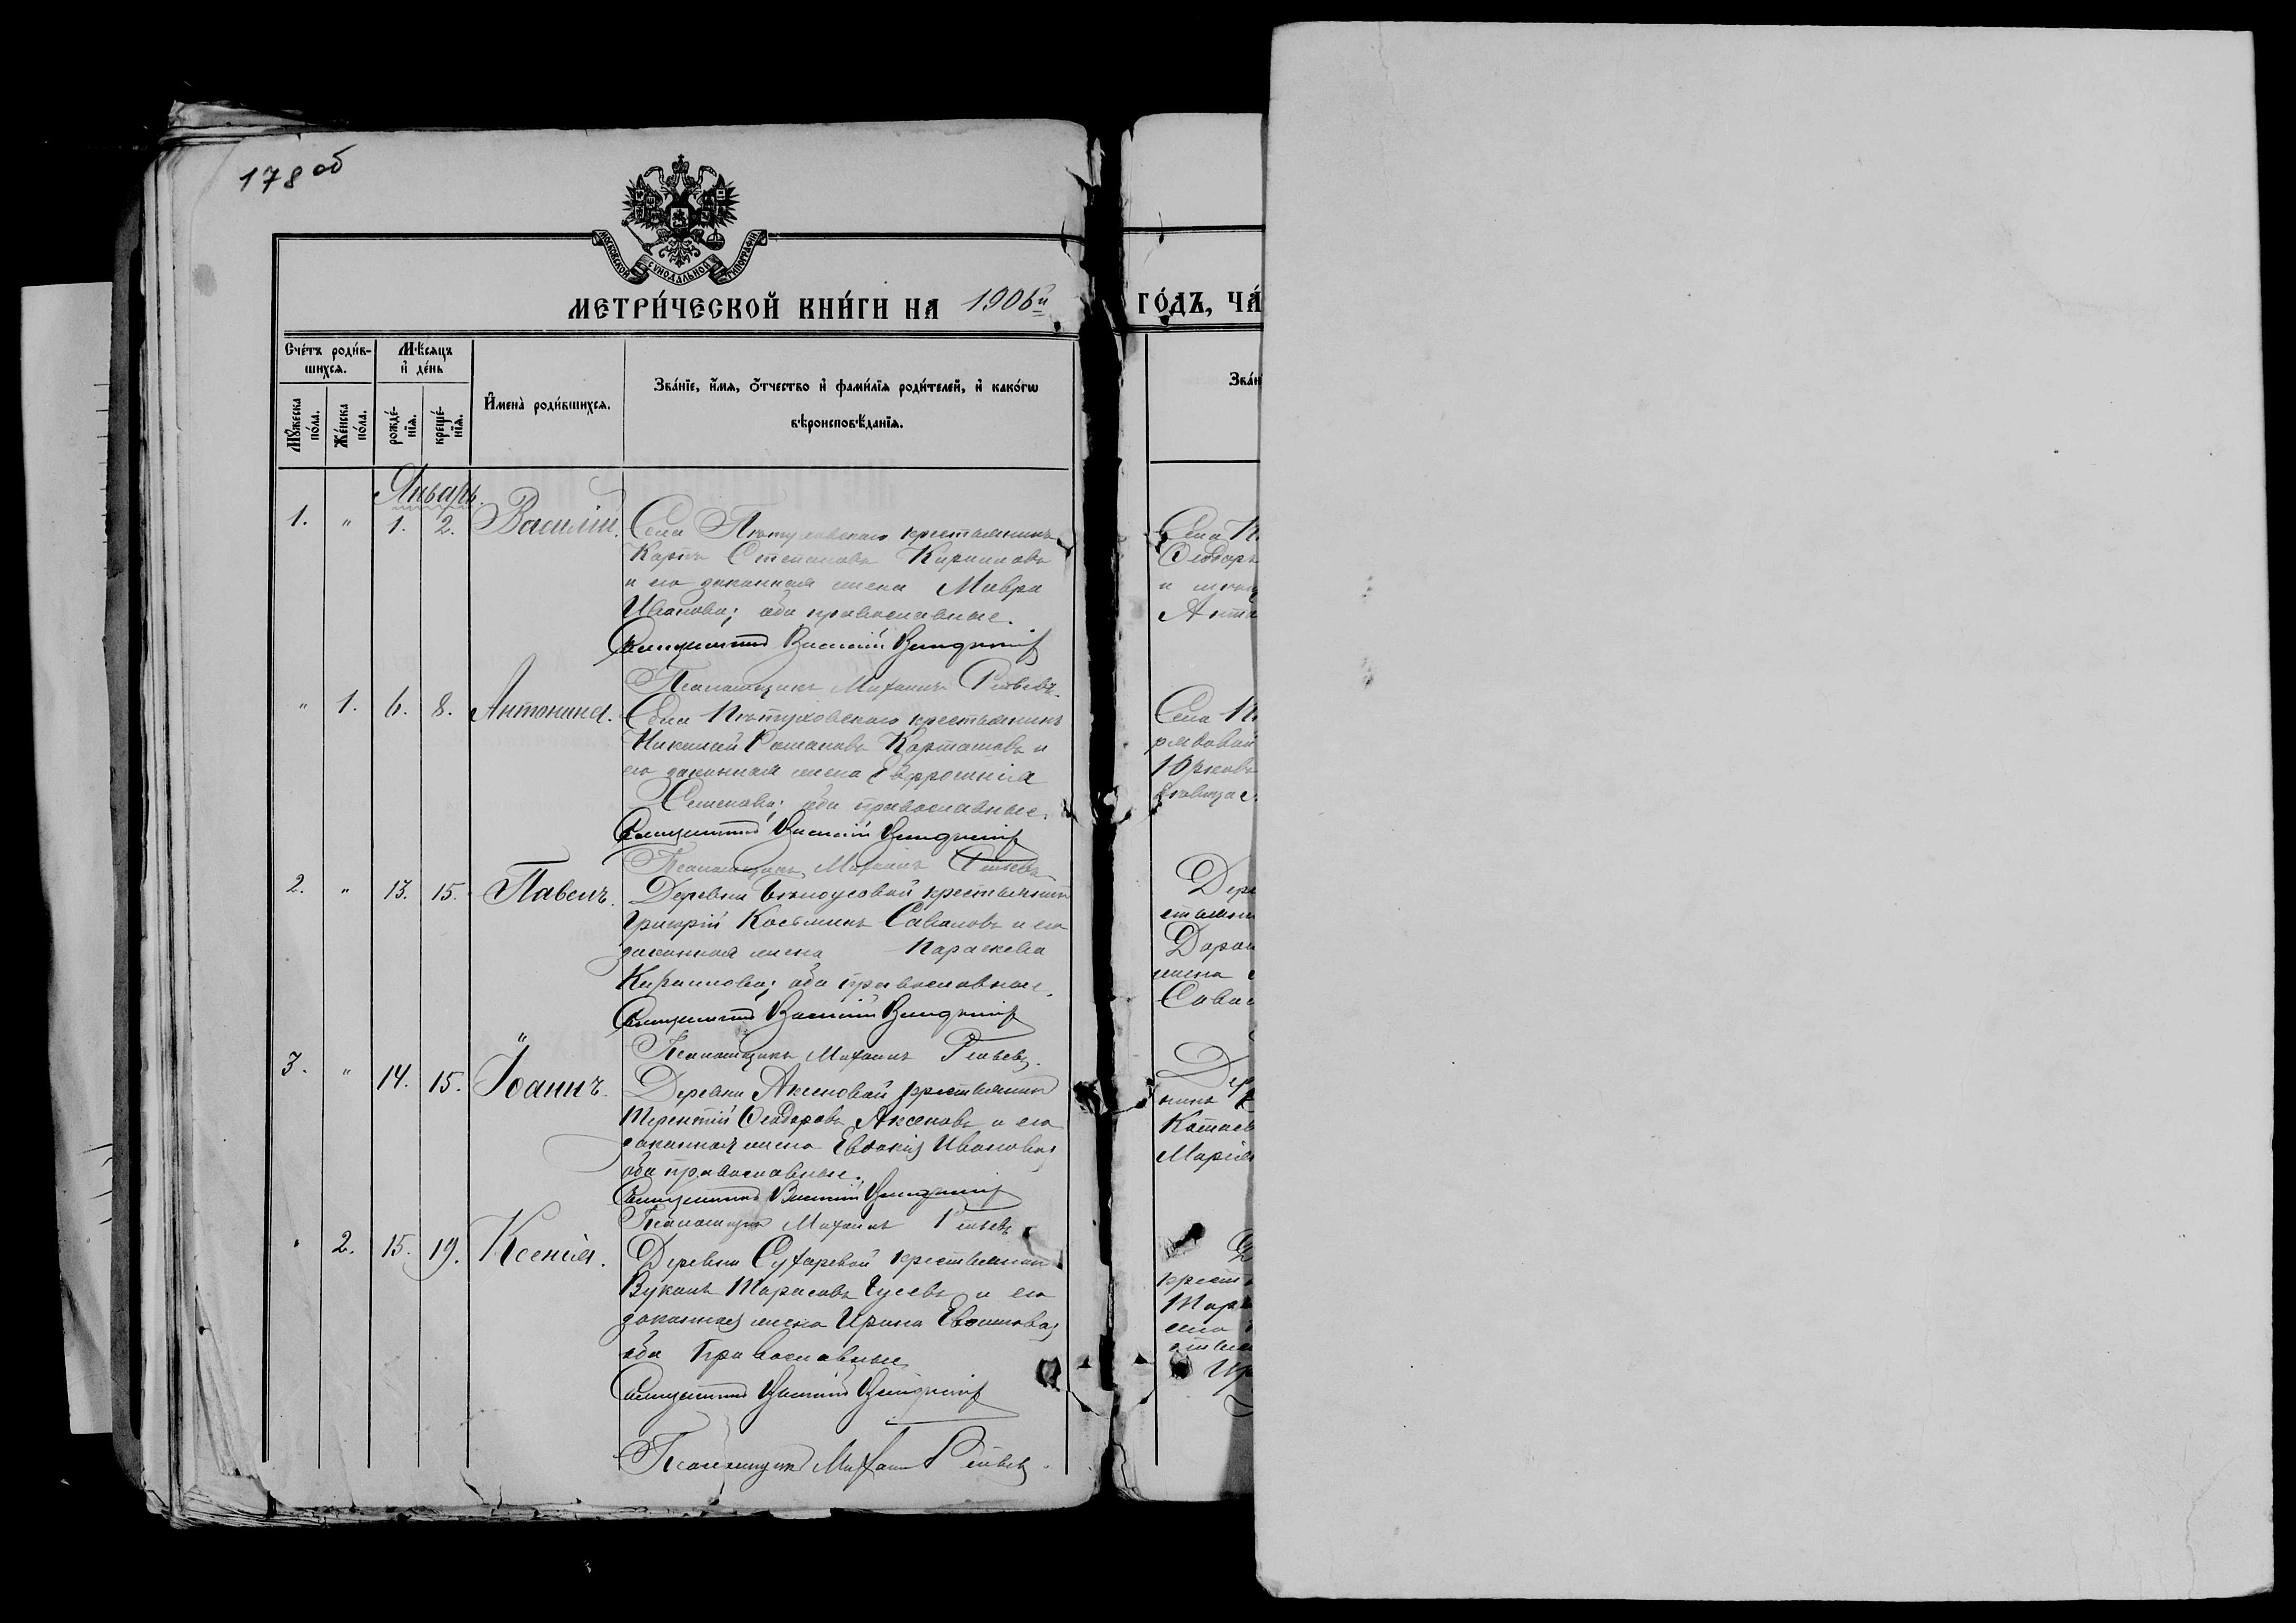 178 об
МОСКОВСКОЙ СѴНОДАЛЬНОЙ ТИПОГРАФІИ
МЕТРИ́ЧЕСКОЙ КНИ́ГИ НА 1906й
ГО́ДЪ, ЧА́
Сче́тъ роди́в-
шихся.
Мѣ́сяцъ
и҆ де́нь
Му́жеска
по́ла.
Же́нска
по́ла.
рожде́-
нїя.
креще́-
нїя.
И҆мена̀ роди́вшихся.
Зва́нїе, и҆́мя, ѻ҆́тчество и҆ фами́лїя роди́телей, и҆ како́гѡ
вѣроисповѣ́данїя.
Январь.
1. " 1. 2. Василій.
Села Пѣтуховскаго крестьянинъ
Карпъ Степановъ Кирилловъ
и его законная жена Мавра
Иванова; оба православные.
Священникъ Василій
Псаломщикъ Михаилъ
" 1. 6. 8. Антонина.
Села Пѣтуховскаго крестьянинъ
Николай Романовъ Карташовъ и
его законная жена Евфросинія
Семенова; оба православные.
Священникъ Василій
Псаломщикъ Михаилъ
2. " 13. 15. Павелъ.
Деревни Бѣлоусовой крестьянинъ
Григорій Косьминъ Савановъ и его
законная жена Параскева
Кириллова; оба православные.
Священникъ Василій
Псаломщикъ Михаилъ
3. " 14. 15. Іоаннъ.
Деревни Аксеновой крестьянинъ
Терентій Ѳеодоровъ Аксеновъ и его
законная жена Евдокія Иванова,
оба православные.
Священникъ Василій
Псаломщикъ Михаилъ
" 2. 15. 19. Ксенія.
Деревни Сухаревой крестьянинъ
Вуколъ Тарасовъ Гусевъ и его
законная жена Ирина
оба православные
Священникъ Василій
Псаломщикъ Михаилъ
Зва́н
Села П
Ѳеодоръ
и
Анта
Села П
рядовой
Юрковъ
Дере
Дорон
жена
Сава
Дер
нинъ
Катаев
Марія
крест
Тара
села
Ир